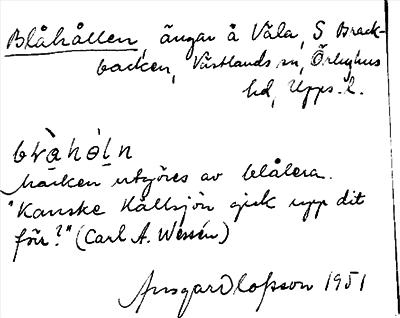 Blåhållen, ängar å Våla, S Brack-
backen, Västlands sn, Örbyhus
hd, Upps. l.
Marken utgöres av blålera.
"Kanske Hållsjön gick upp dit
förr?" (Carl A. Wessén)
Ansgar Olofsson 1951